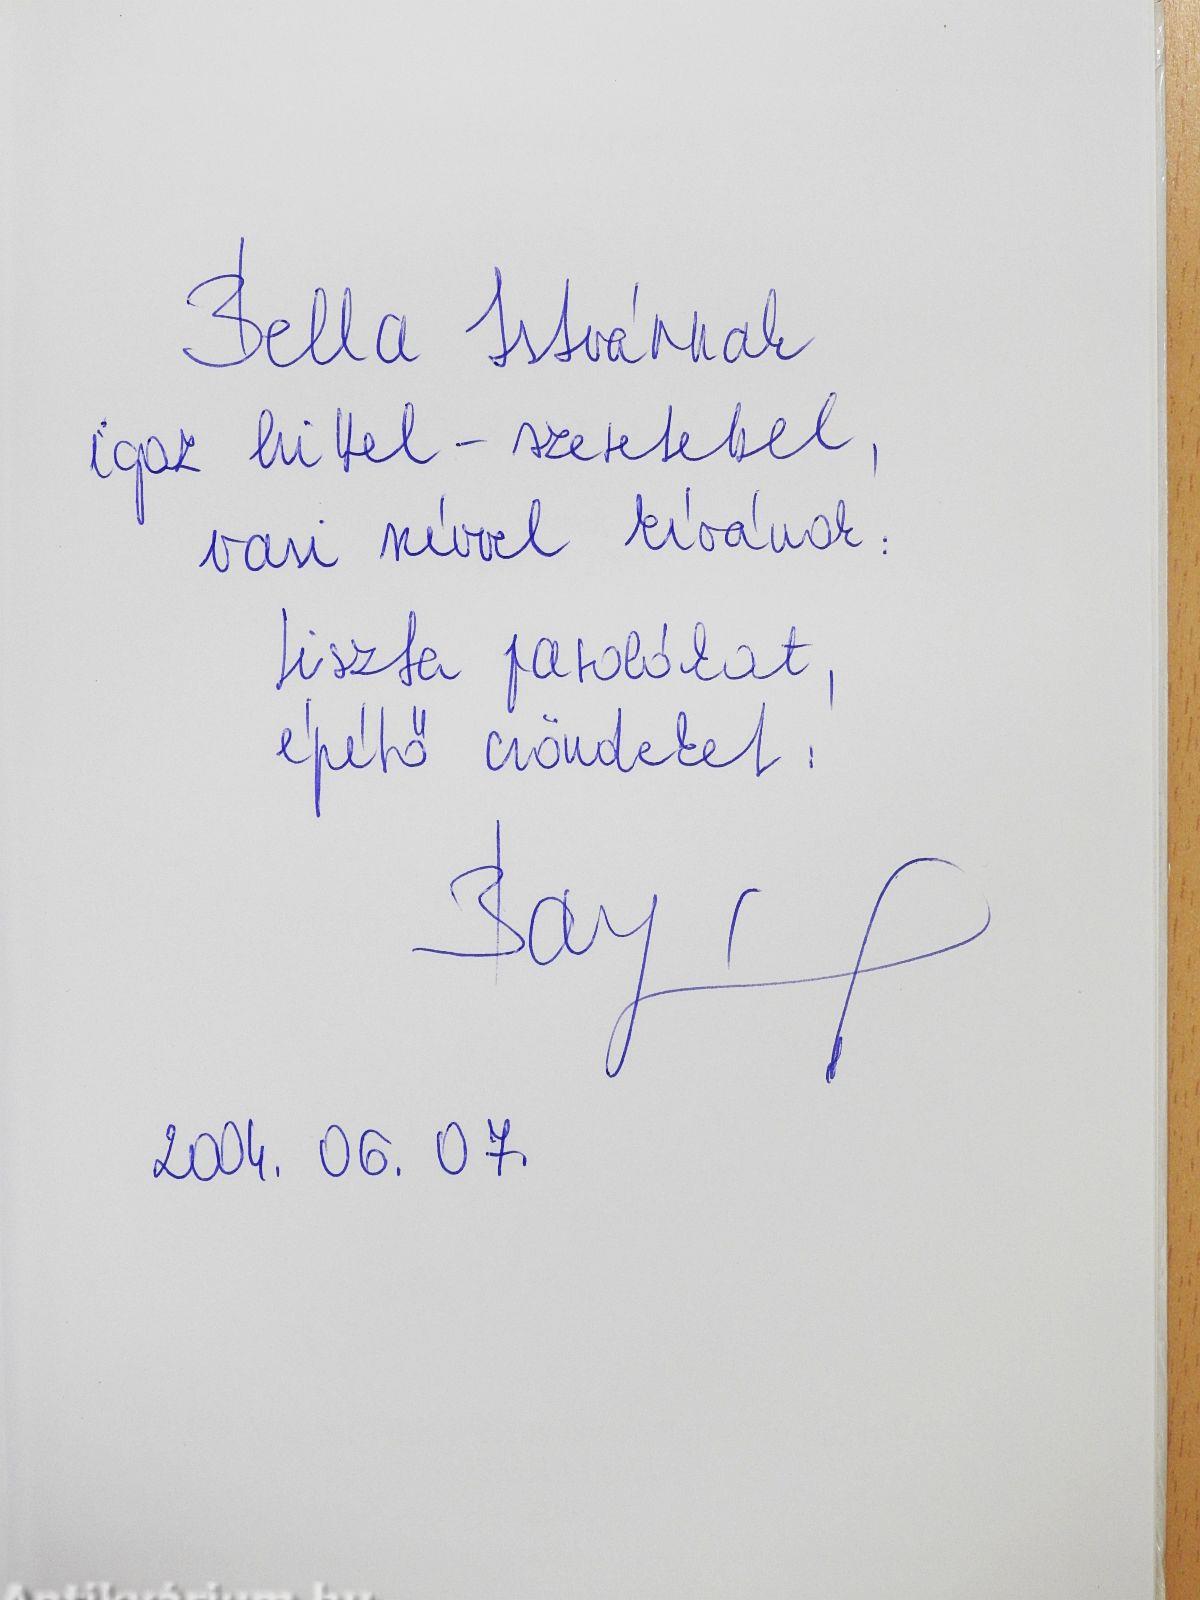 Bella Istvánnak
igaz hittel - szeretettel,
vasi névvel kívánok:
tiszta parolákat,
építő csöndeket!
Bay
2004. 06. 07.
Antikvárium.hu